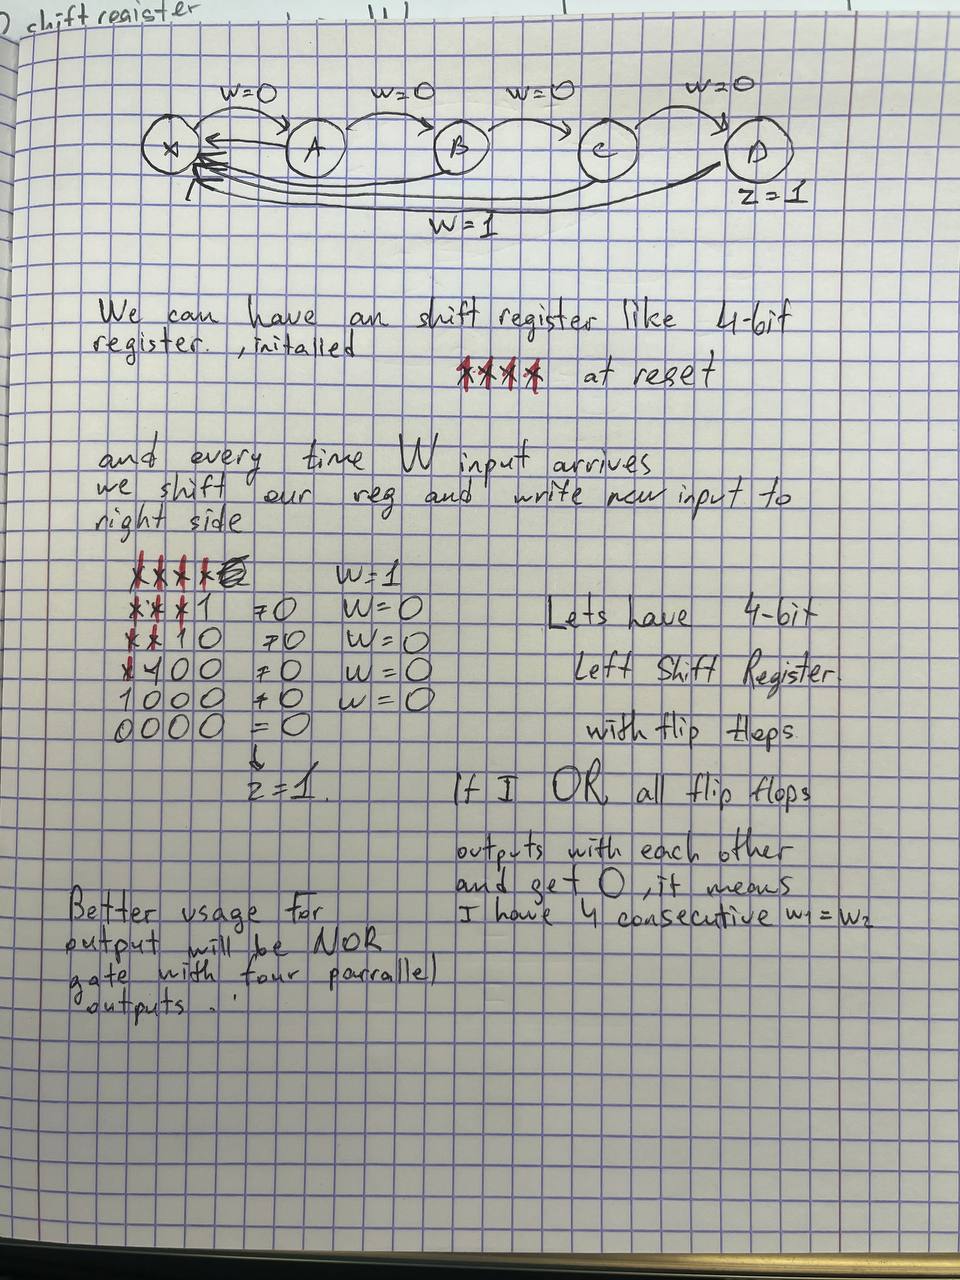 shift register
W=0 W=0 W=0 W=0
X A B C D
Z=1
W=1
We can have an shift register like 4-bit
register. , initalled
xxxx at reset
and every time W input arrives
we shift our reg and write new input to
right side
xxxx W=1
xxx1 ≠0 W=0
xx10 ≠0 W=0
x100 ≠0 W=0
1000 ≠0 W=0
0000 = 0
↓
z=1.
Lets have 4-bit
Left Shift Register.
with flip flops
If I OR all flip flops
outputs with each other
and get 0, it means
I have 4 consecutive w1=w2
Better usage for
output will be NOR
gate with four parralel
outputs.